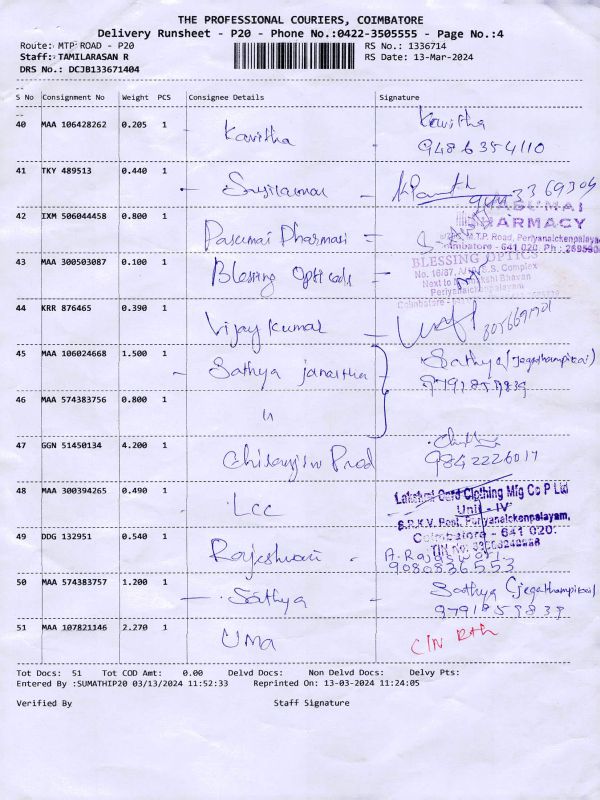 THE PROFESSIONAL COURIERS, COIMBATORE
Delivery Runsheet - P20 - Phone No.:0422-3505555 - Page No.:4
Route: MTP ROAD - P20 RS No.: 1336714
Staff: TAMILARASAN R RS Date: 13-Mar-2024
DRS No.: DCJB133671404
S No Consignment No Weight PCS Consignee Details Signature
40 MAA 106428262 0.205 1 Kavitha Kavitha
9486354110
41 TKY 489513 0.440 1
42 IXM 506044458 0.800 1 Pasumai Pharmasi =
PHARMACY
M.T.P. Road, Periyanaickenpalayam
Coimbatore - 641 020. Ph :
43 MAA 300503087 0.100 1 Blessing Opticals
BLESSING OPTICS
No. 16/87, S.S. Complex
Bhavan
Periyanaickenpalayam
44 KRR 876465 0.390 1 Vijay Kumar
45 MAA 106024668 1.500 1 Sathya Sathya (Jegathampikai)
46 MAA 574383756 0.800 1 "
47 GGN 51450134 4.200 1 Prod
9842226017
48 MAA 300394265 0.490 1 LCC
Lakshmi Card Clothing Mfg Co P Ltd
Unit - IV
S.R.K.V. Post, Periyanaickenpalayam,
Coimbatore - 641 020.
49 DDG 132951 0.540 1 Rajeshwari
9080836553
50 MAA 574383757 1.200 1 Sathya Sathya (Jegathampikai)
9791859839
51 MAA 107821146 2.270 1 Uma
Tot Docs: 51 Tot COD Amt: 0.00 Delvd Docs: Non Delvd Docs: Delvy Pts:
Entered By :SUMATHIP20 03/13/2024 11:52:33 Reprinted On: 13-03-2024 11:24:05
Verified By Staff Signature